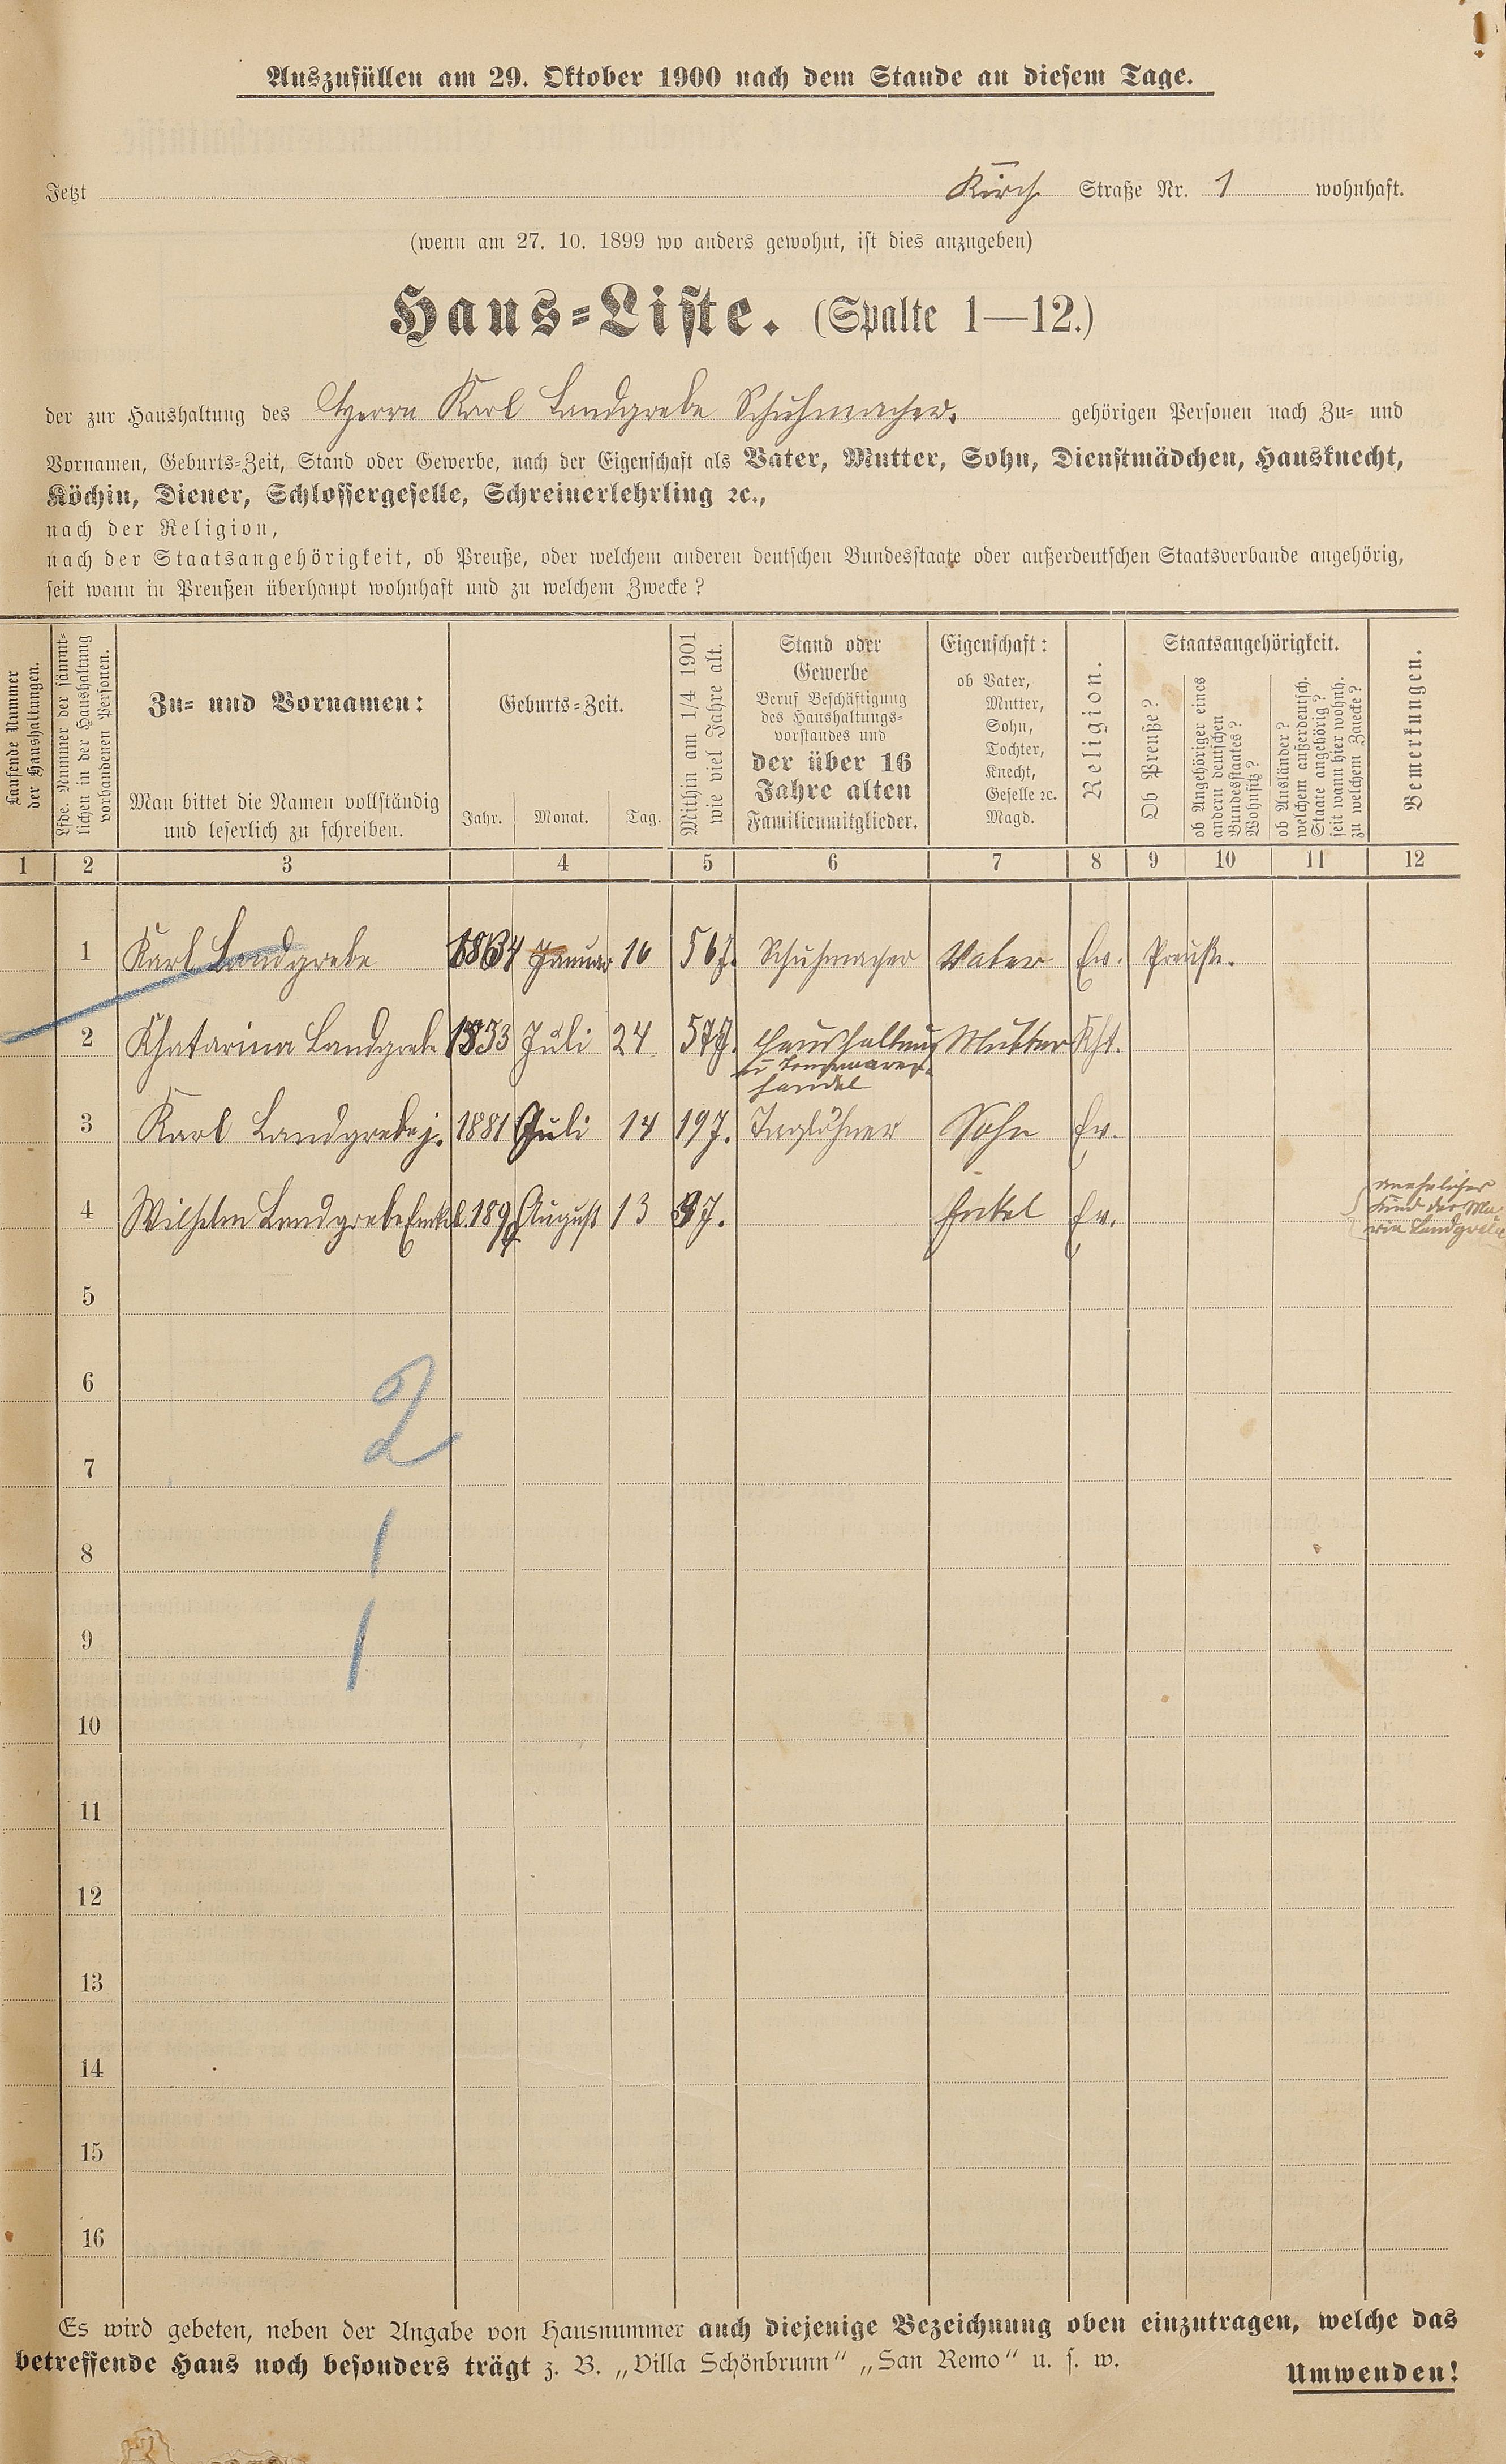 Auszufüllen am 29. Oktober 1900 nach dem Stande an diesem Tage.
Jetzt Kirch Straße Nr. 1 wohnhaft.
(wenn am 27. 10. 1899 wo anders gewohnt, ist dies anzugeben)
Haus-Liste. (Spalte 1—12.)
der zur Haushaltung des Herrn Karl Landgrebe Schuhmacher. gehörigen Personen nach Zu- und
Vornamen, Geburts-Zeit, Stand oder Gewerbe, nach der Eigenschaft als Vater, Mutter, Sohn, Dienstmädchen, Hausknecht,
Köchin, Diener, Schlossergeselle, Schreinerlehrling ꝛc.,
nach der Religion,
nach der Staatsangehörigkeit, ob Preuße, oder welchem anderen deutschen Bundesstaate oder außerdeutschen Staatsverbande angehörig,
seit wann in Preußen überhaupt wohnhaft und zu welchem Zwecke?
Laufende Nummer
der Haushaltungen.
Lfde. Nummer der sämmt-
lichen in der Haushaltung
vorhandenen Personen.
Zu- und Vornamen:
Man bittet die Namen vollständig
und leserlich zu schreiben.
Geburts-Zeit.
Jahr. Monat. Tag.
Mithin am 1/4 1901
wie viel Jahre alt.
Stand oder
Gewerbe
Beruf Beschäftigung
des Haushaltungs-
vorstandes und
der über 16
Jahre alten
Familienmitglieder.
Eigenschaft:
ob Vater,
Mutter,
Sohn,
Tochter,
Knecht,
Geselle ꝛc.
Magd.
Religion.
Staatsangehörigkeit.
Ob Preuße?
ob Angehöriger eines
andern deutschen
Bundesstaates?
Wohnsitz?
ob Ausländer?
welchem außerdeutsch.
Staate angehörig?
seit wann hier wohnh.
zu welchem Zwecke?
Bemerkungen.
1 2 3 4 5 6 7 8 9 10 11 12
1 Karl Landgrebe Januar 16 56 J. Schuhmacher Vater Ev. Preuße.
2 Khatarina Landgrebe 1853 Juli 24 J. Haushaltung Mutter Kht.
handel
3 Karl Landgrebe j. 1881 Juli 14 19 J. Taglöhner Sohn Ev.
4 Wilhelm Landgrebe Enkel. August 13 J. Enkel Ev.
unehelicher
Kind der Ma-
ria Landgrebe
5
6
2
7
8
1
9
1
10
11
12
13
14
15
16
Es wird gebeten, neben der Angabe von Hausnummer auch diejenige Bezeichnung oben einzutragen, welche das
betreffende Haus noch besonders trägt z. B. „Villa Schönbrunn“ „San Remo“ u. s. w.
Umwenden!